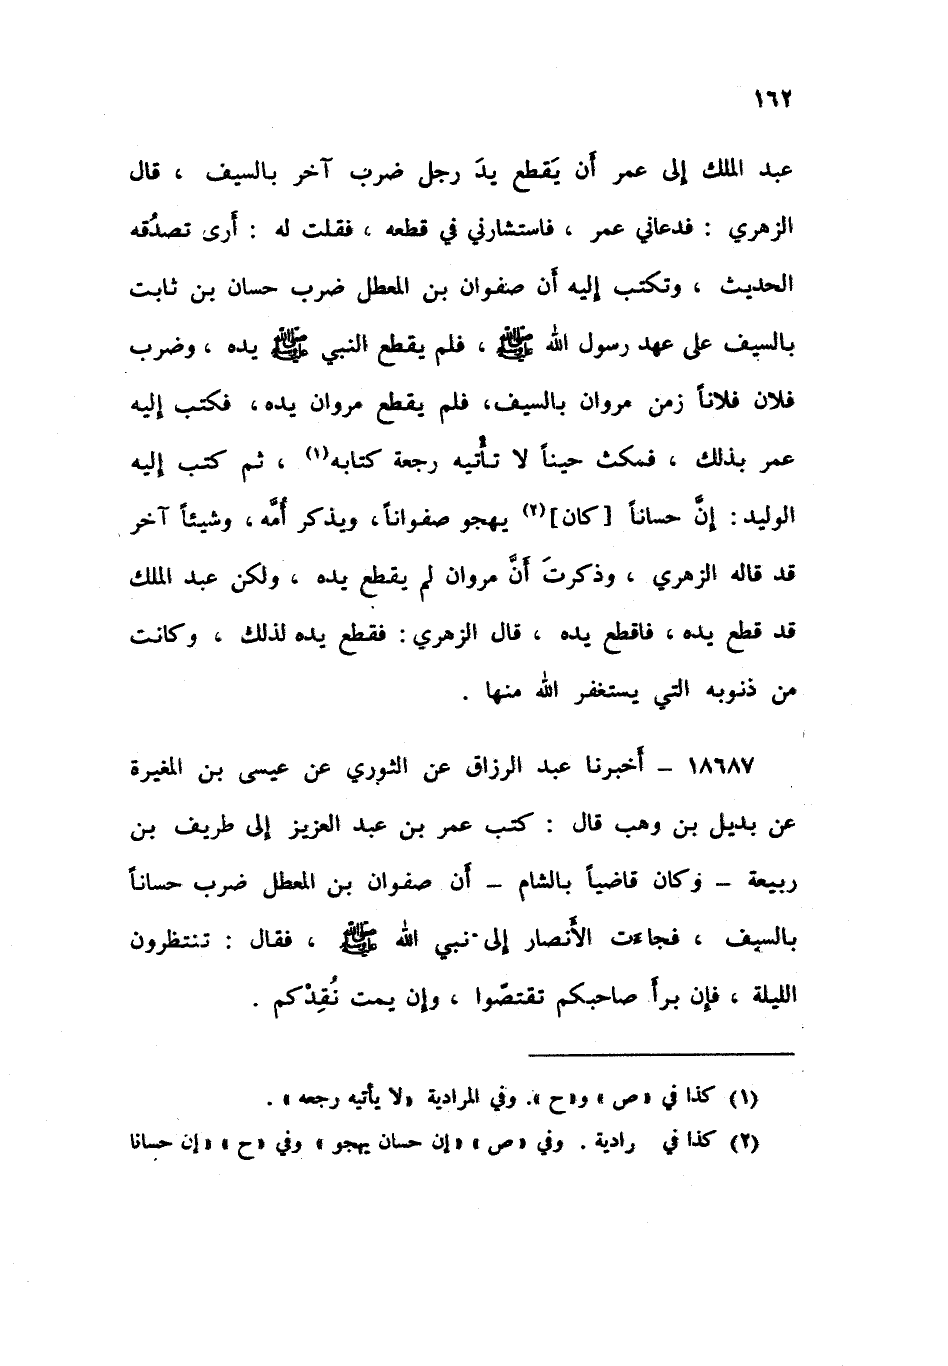 ١٦٢
عبد الملك إلى عمر أَن يَقطع يدَ رجل ضرب آخر بالسيف ، قال
الزهري : فدعاني عمر ، فاستشارني في قطعه ، فقلت له : أَرى تصدُقه
الحديث ، وتكتب إليه أَن صفوان بن المعطل ضرب حسان بن ثابت
بالسيف على عهد رسول الله ﷺ ، فلم يقطع النبي ﷺ يده ، وضرب
فلان فلاناً زمن مروان بالسيف، فلم يقطع مروان يده، فكتب إليه
عمر بذلك ، فمكث حيناً لا تأْتيه رجعة كتابه(١) ، ثم كتب إليه
الوليد: إنَّ حساناً [كان](٢) يهجو صفواناً، ويذكر أُمَّه، وشيئاً آخر
قد قاله الزهري ، وذكرتَ أَنَّ مروان لم يقطع يده ، ولكن عبد الملك
قد قطع يده ، فاقطع يده ، قال الزهري : فقطع يده لذلك ، وكانت
من ذنوبه التي يستغفر الله منها .
١٨٦٨٧ – أَخبرنا عبد الرزاق عن الثوري عن عيسى بن المغيرة
عن بديل بن وهب قال : كتب عمر بن عبد العزيز إلى طريف بن
ربيعة – وكان قاضياً بالشام – أَن صفوان بن المعطل ضرب حساناً
بالسيف ، فجاءت الأَنصار إلى نبي الله ﷺ ، فقال : تنتظرون
الليلة ، فإن برأَ صاحبكم تقتصّوا ، وإن يمت نُقِدْكم .
(١) كذا في «ص» و«ح». وفي المرادية «لا يأتيه رجعه» .
(٢) كذا في رادية . وفي «ص» «إن حسان يهجو» وفي «ح» «إن حسانا